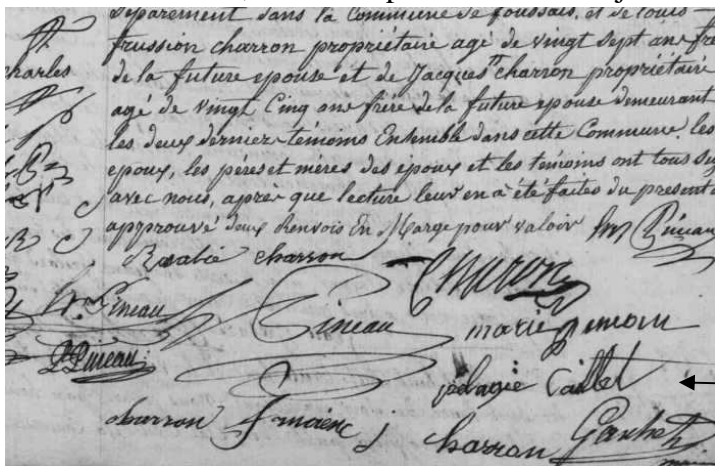 séparément dans la Commune de foussais, et de louis
frussion charron propriétaire agé de vingt sept ans fre
charles
de la future epouse et de Jacques charron propriétaire
agé de vingt Cinq ans frère de la future epouse demeurant
les deux derniers temoins Ensemble dans cette Commune. les
epoux, les pères et mères des époux et les temoins ont tous sig
avec nous, après que lecture leur en a été faites du present
approuvé deux Renvois En Marge pour valoir
M Pineau
Rosalie charron
charron
Pineau
Pineau
marie
P Pineau
pélagie Caillet
charron
charron